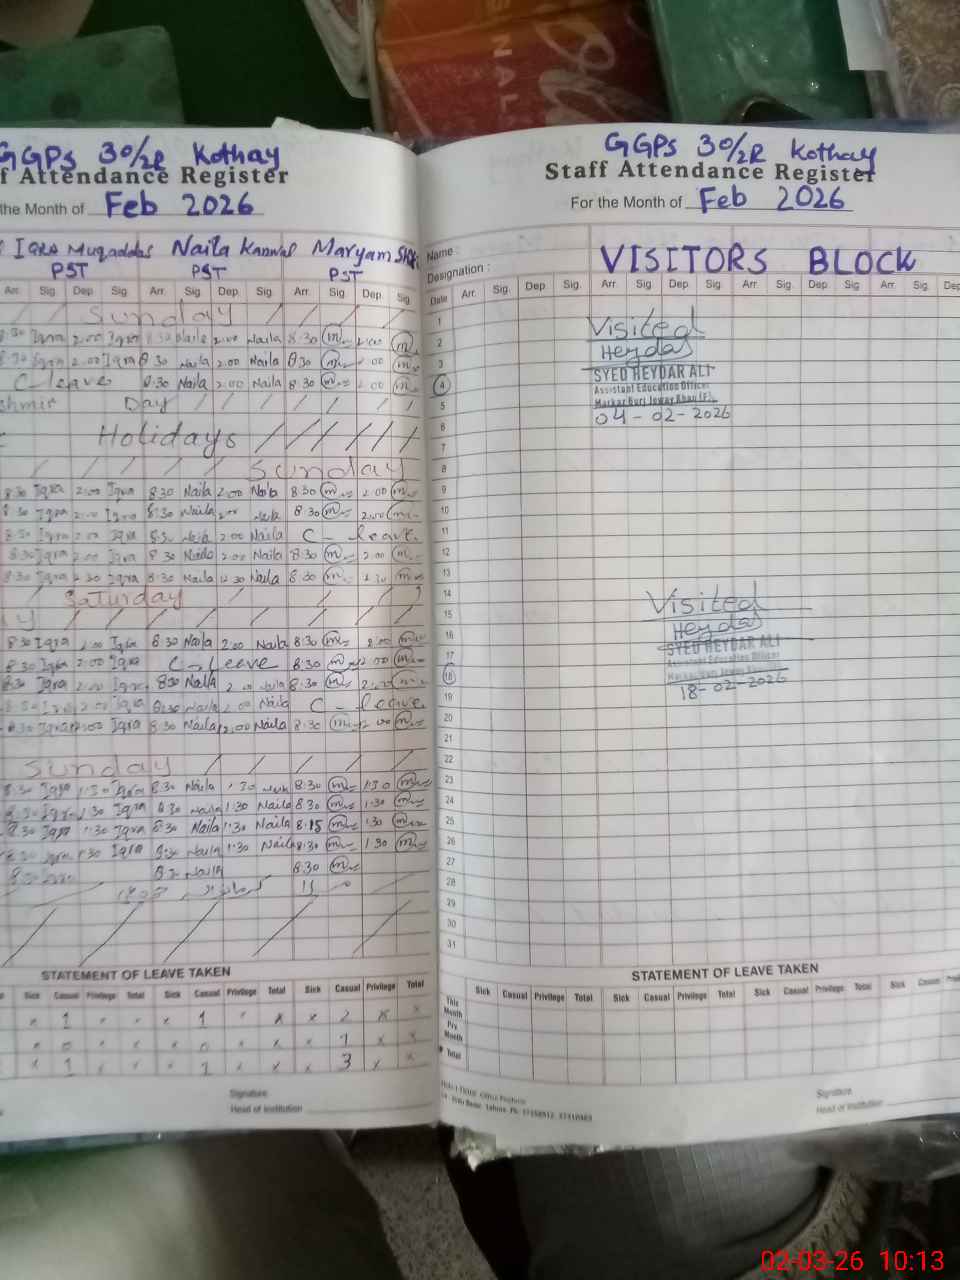 GGPS 30/2R Kothay
f Attendance Register
the Month of Feb 2026
Iqra Muqaddas Naila Kanwal Maryam
PST PST PST
Arr. Sig. Dep. Sig. Arr. Sig. Dep. Sig. Arr. Sig. Dep. Sig.
Sunday
8:30 Iqra 2:00 Iqra 8:30 Naila 2:00 Naila 8:30 m 2:00 m
8:30 Iqra 2:00 Iqra 8:30 Naila 2:00 Naila 8:30 m 2:00 m
C leave 8:30 Naila 2:00 Naila 8:30 m 2:00 m
shmir Day
Holidays
Sunday
8:30 Iqra 2:00 Iqra 8:30 Naila 2:00 Naila 8:30 m 2:00 m
8:30 Iqra 2:00 Iqra 8:30 Naila 2:00 Naila 8:30 m 2:00 m
8:30 Iqra 2:00 Iqra 8:30 Naila 2:00 Naila C - leave
8:30 Iqra 2:00 Iqra 8:30 Naila 2:00 Naila 8:30 m 2:00 m
8:30 Iqra 12:30 Iqra 8:30 Naila 12:30 Naila 8:30 m 12:30 m
Saturday
8:30 Iqra 2:00 Iqra 8:30 Naila 2:00 Naila 8:30 m 2:00 m
8:30 Iqra 2:00 Iqra C - Leave 8:30 m 2:00 m
8:30 Iqra 2:00 Iqra 8:30 Naila 2:00 Naila 8:30 m 2:00 m
8:30 Iqra 2:00 Iqra 8:30 Naila 2:00 Naila C - leave
8:30 Iqra 12:00 Iqra 8:30 Naila 12:00 Naila 8:30 m 12:00 m
Sunday
8:30 Iqra 1:30 Iqra 8:30 Naila 1:30 Naila 8:30 m 1:30 m
8:30 Iqra 1:30 Iqra 8:30 Naila 1:30 Naila 8:30 m 1:30 m
8:30 Iqra 1:30 Iqra 8:30 Naila 1:30 Naila 8:15 m 1:30 m
8:30 Iqra 1:30 Iqra 8:30 Naila 1:30 Naila 8:30 m 1:30 m
8:30 Iqra 8:30 Naila 8:30 m
STATEMENT OF LEAVE TAKEN
Sick Casual Privilege Total Sick Casual Privilege Total Sick Casual Privilege Total
x 1 x x x 1 x x x 2 x x
x 0 x x x 0 x x x 1 x x
x 1 x x x 1 x x x 3 x x
Signature
Head of Institution
GGPS 30/2R Kothay
Staff Attendance Register
For the Month of Feb 2026
Name :
VISITORS BLOCK
Designation :
Date Arr. Sig. Dep. Sig. Arr. Sig. Dep. Sig. Arr. Sig. Dep. Sig. Arr. Sig. Dep
1
2
3
4
5
6
7
8
9
10
11
12
13
14
15
16
17
18
19
20
21
22
23
24
25
26
27
28
29
30
31
Visited
Heydar
SYED HEYDAR ALI
Assistant Education Officer
Markaz Burj Jeway Khan (F)
04-02-2026
Visited
Heydar
SYED HEYDAR ALI
Assistant Education Officer
Markaz Burj Jeway Khan (F)
18-02-2026
STATEMENT OF LEAVE TAKEN
Sick Casual Privilege Total Sick Casual Privilege Total Sick Casual Privilege Total Sick Casual
This Month
Prv. Month
Total
Signature
Head of Institution
02-03-26 10:13